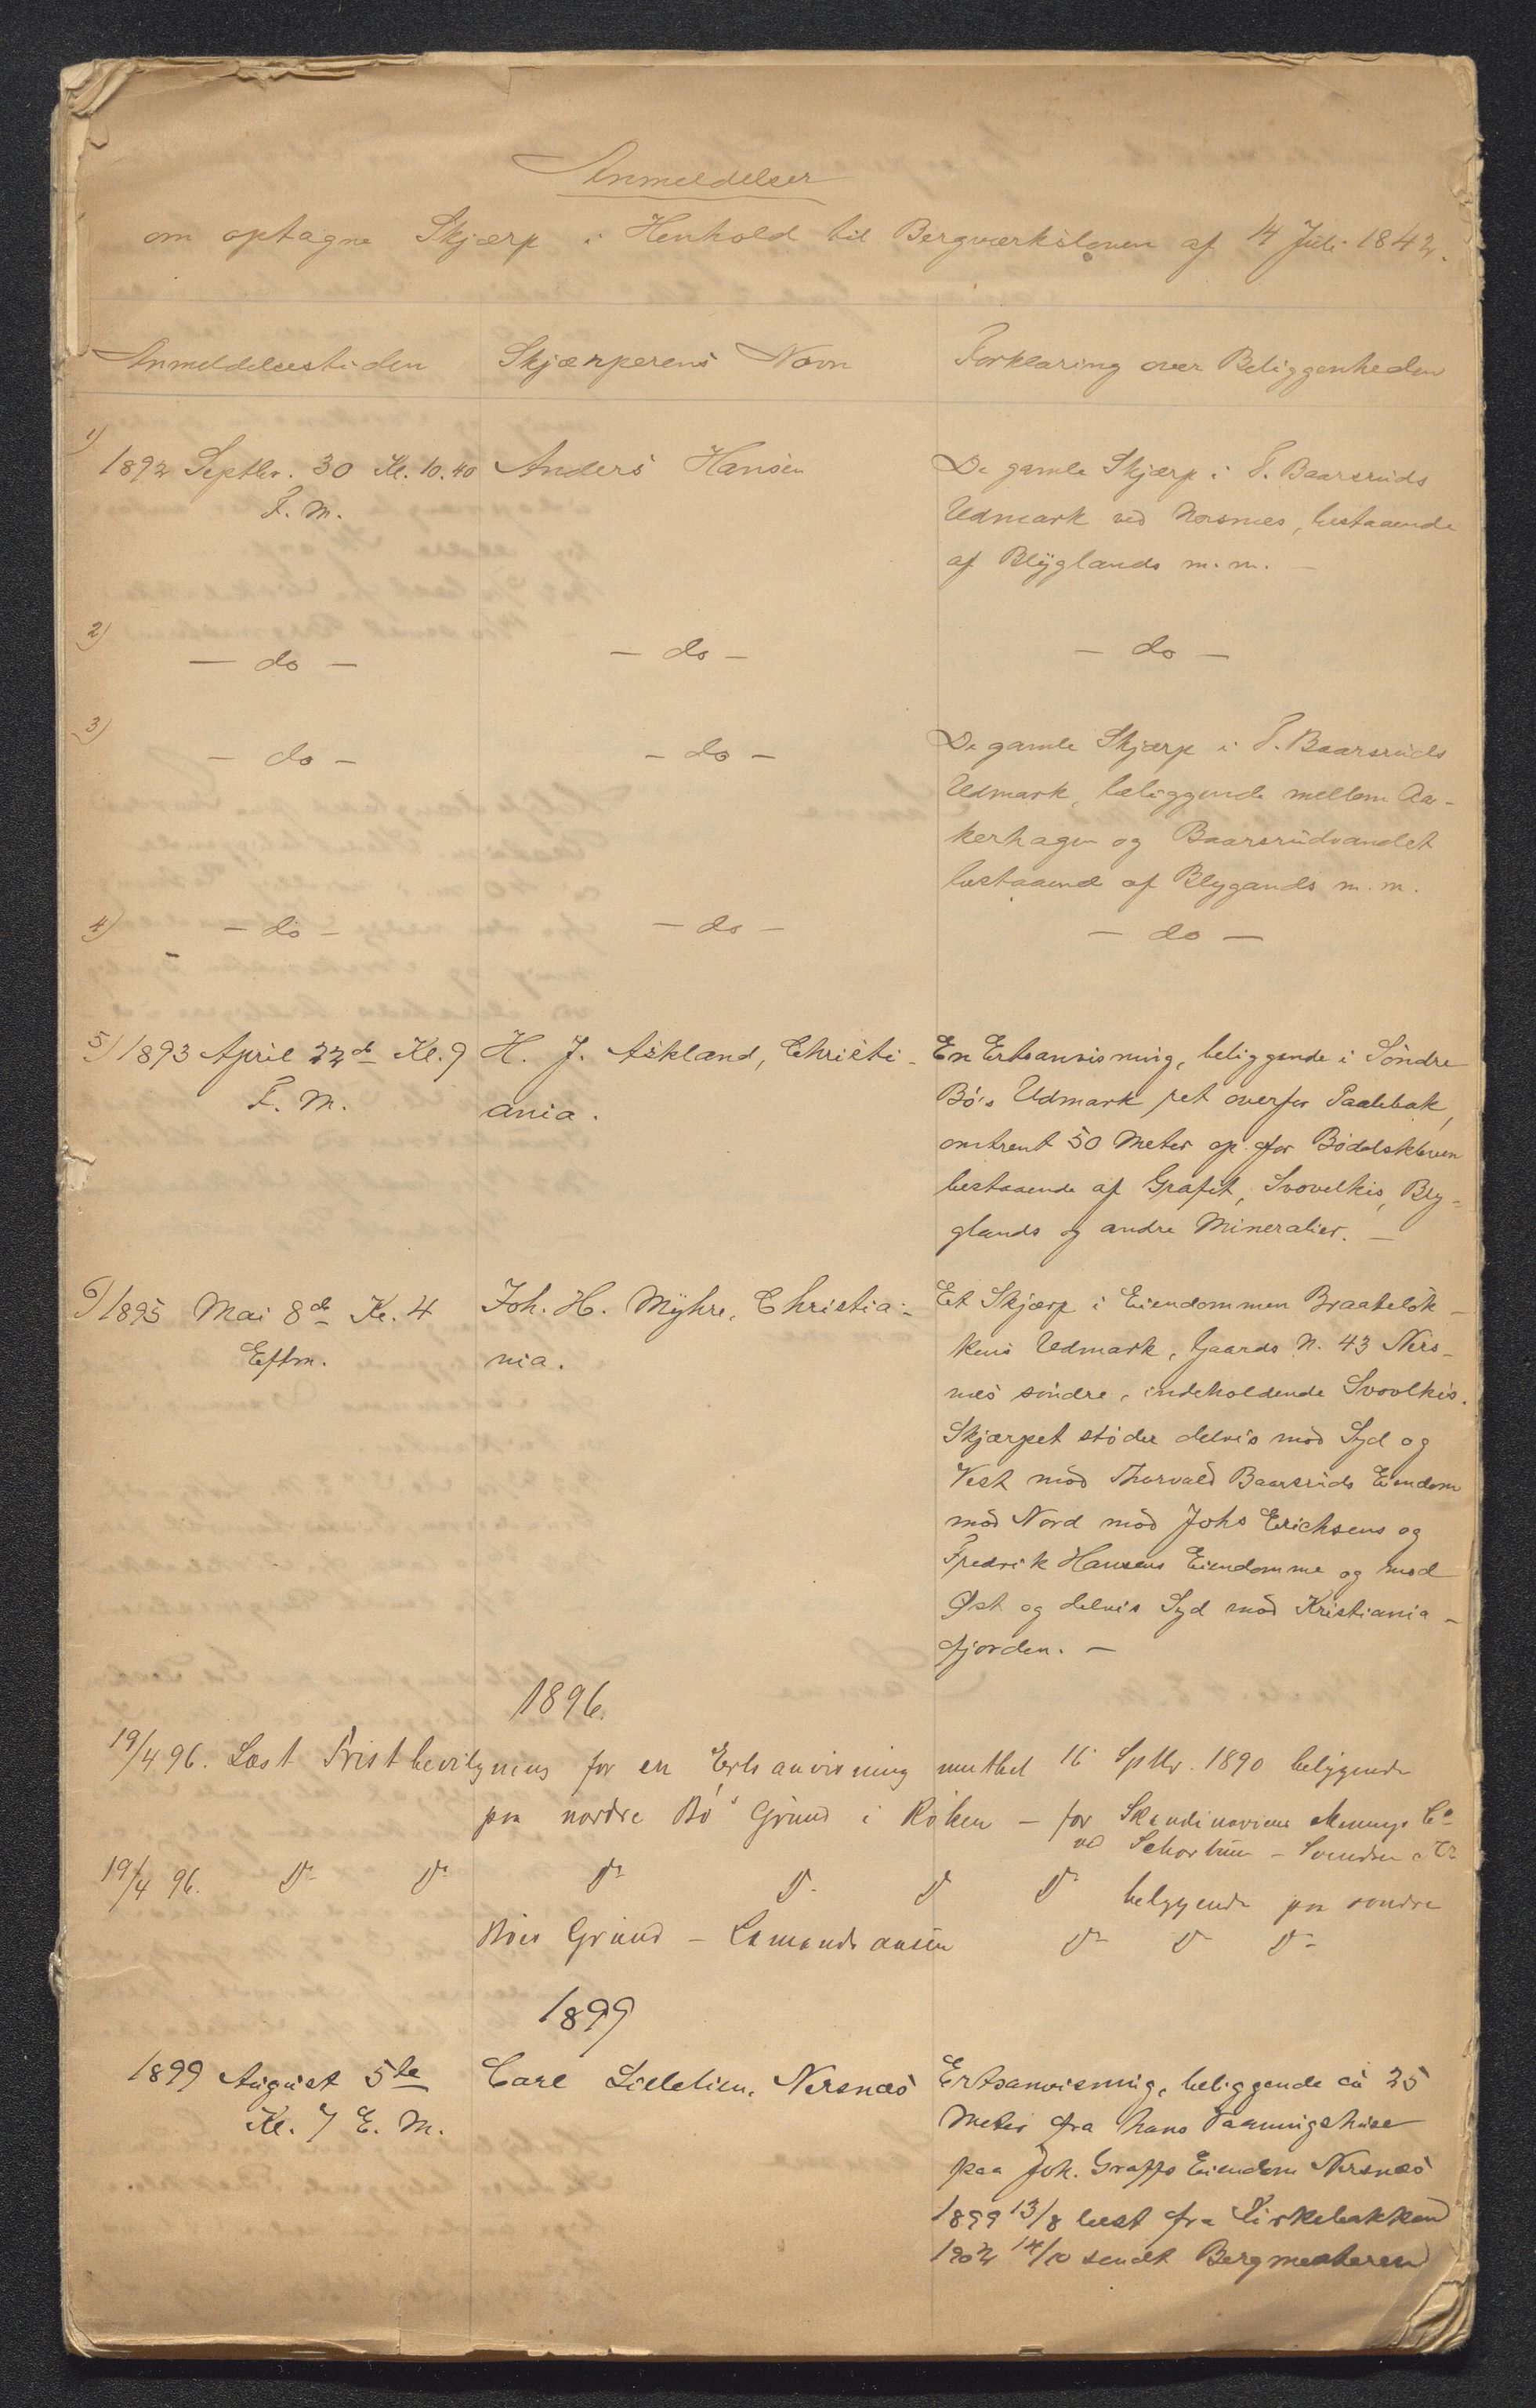 Anmeldelser
om optagne Skjærp i Henhold til Bergværksloven af 14 Juli 1842.
Anmeldelsestiden Skjærperens Navn Forklaring over Beliggenheden
1) 1892 Septbr. 30 Kl. 10.40 Anders Hansen De gamle Skjærp i T. Baarsruds
F. M. Udmark ved Nersnes, bestaaende
af Blÿglands m. m. —
2) — do — — do — — do —
3) — do — — do — De gamle Skjærp i T. Baarsruds
Udmark, beliggende mellem Aa-
kerhagen og Baarsrudvandet
bestaaend af Blygands m. m.
4) — do — — do — — do —
5) 1893 April 22d Kl. 9 H. J. Askland, Christi- En Ertsanvisning, beliggende i Söndre
F. M. ania. Bö's Udmark ret overfor Paalebak,
omtrent 50 Meter op for Bödalskleven
bestaaende af Grafit, Svovelkis, Bly-
glands og andre Mineralier. —
6) 1895 Mai 8de Kl. 4 Joh. H. Mÿhre, Christia- Et Skjærp i Eiendommen Braatelök-
Eftm. nia. kens Udmark, Gaards N. 43 Ners-
næs söndre, indeholdende Svovlkis.
Skjærpet stöder delvis mod Syd og
Vest mod Thorvald Baarsruds Eiendom
mod Nord mod Johs Erichsens og
Fredrik Hansens Eiendomme og mod
Øst og delvis Syd mod Kristiania-
fjorden. —
1896.
19/4 96. Læst Fristbevilgning for en Ertsanvisning muthet 16 Septbr. 1890 beliggende
paa nordre Bö's Grund i Röken — for Skandinaviens Co
ved Schortun - Svendsen
19/4 96. Do Do Do Do Do Do beliggende paa söndre
Böes Grund — Do Do Do
1899
1899 August 5te Carl Lillelien, Nersnæs Ertsanvisning, beliggende ca 25
Kl. 7 E. M. Meter fra hans Vaaningshuse
paa Joh. Graffs Eiendom Nersnæs
1899 13/8 læst fra Kirkebakken
1902 14/10 sendt Bergmesteren